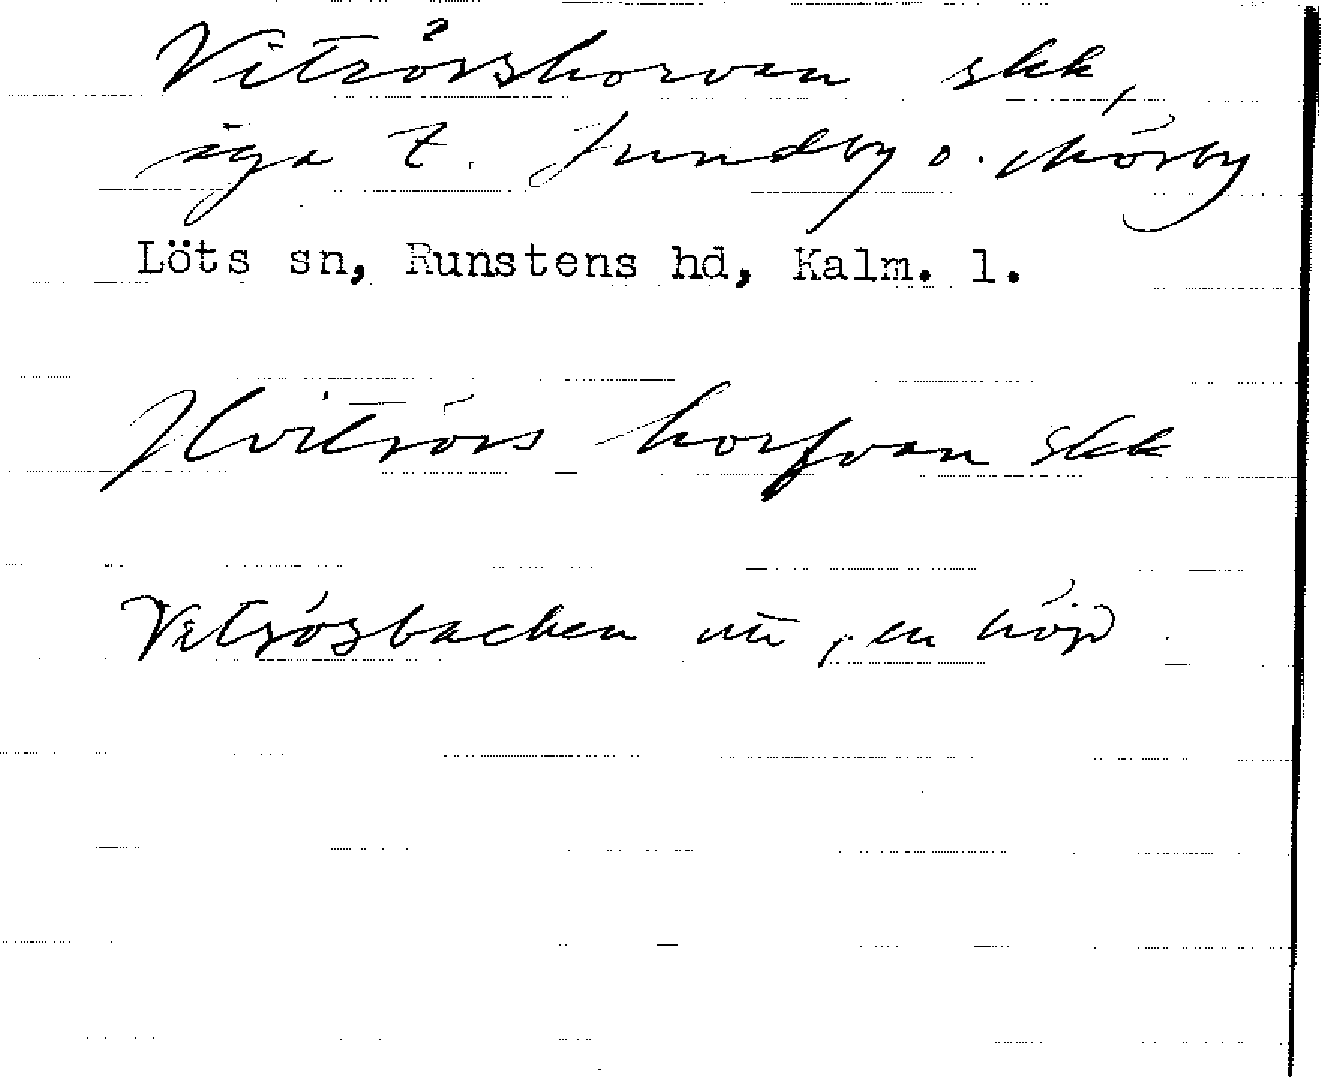 Vitrörshorvan skk,
äga t. Jundby o. Mörby
Löts sn, Runstens hd, Kalm. l.
Hvitrörs horfvan skk
Vitrörsbacken utt , en höjd